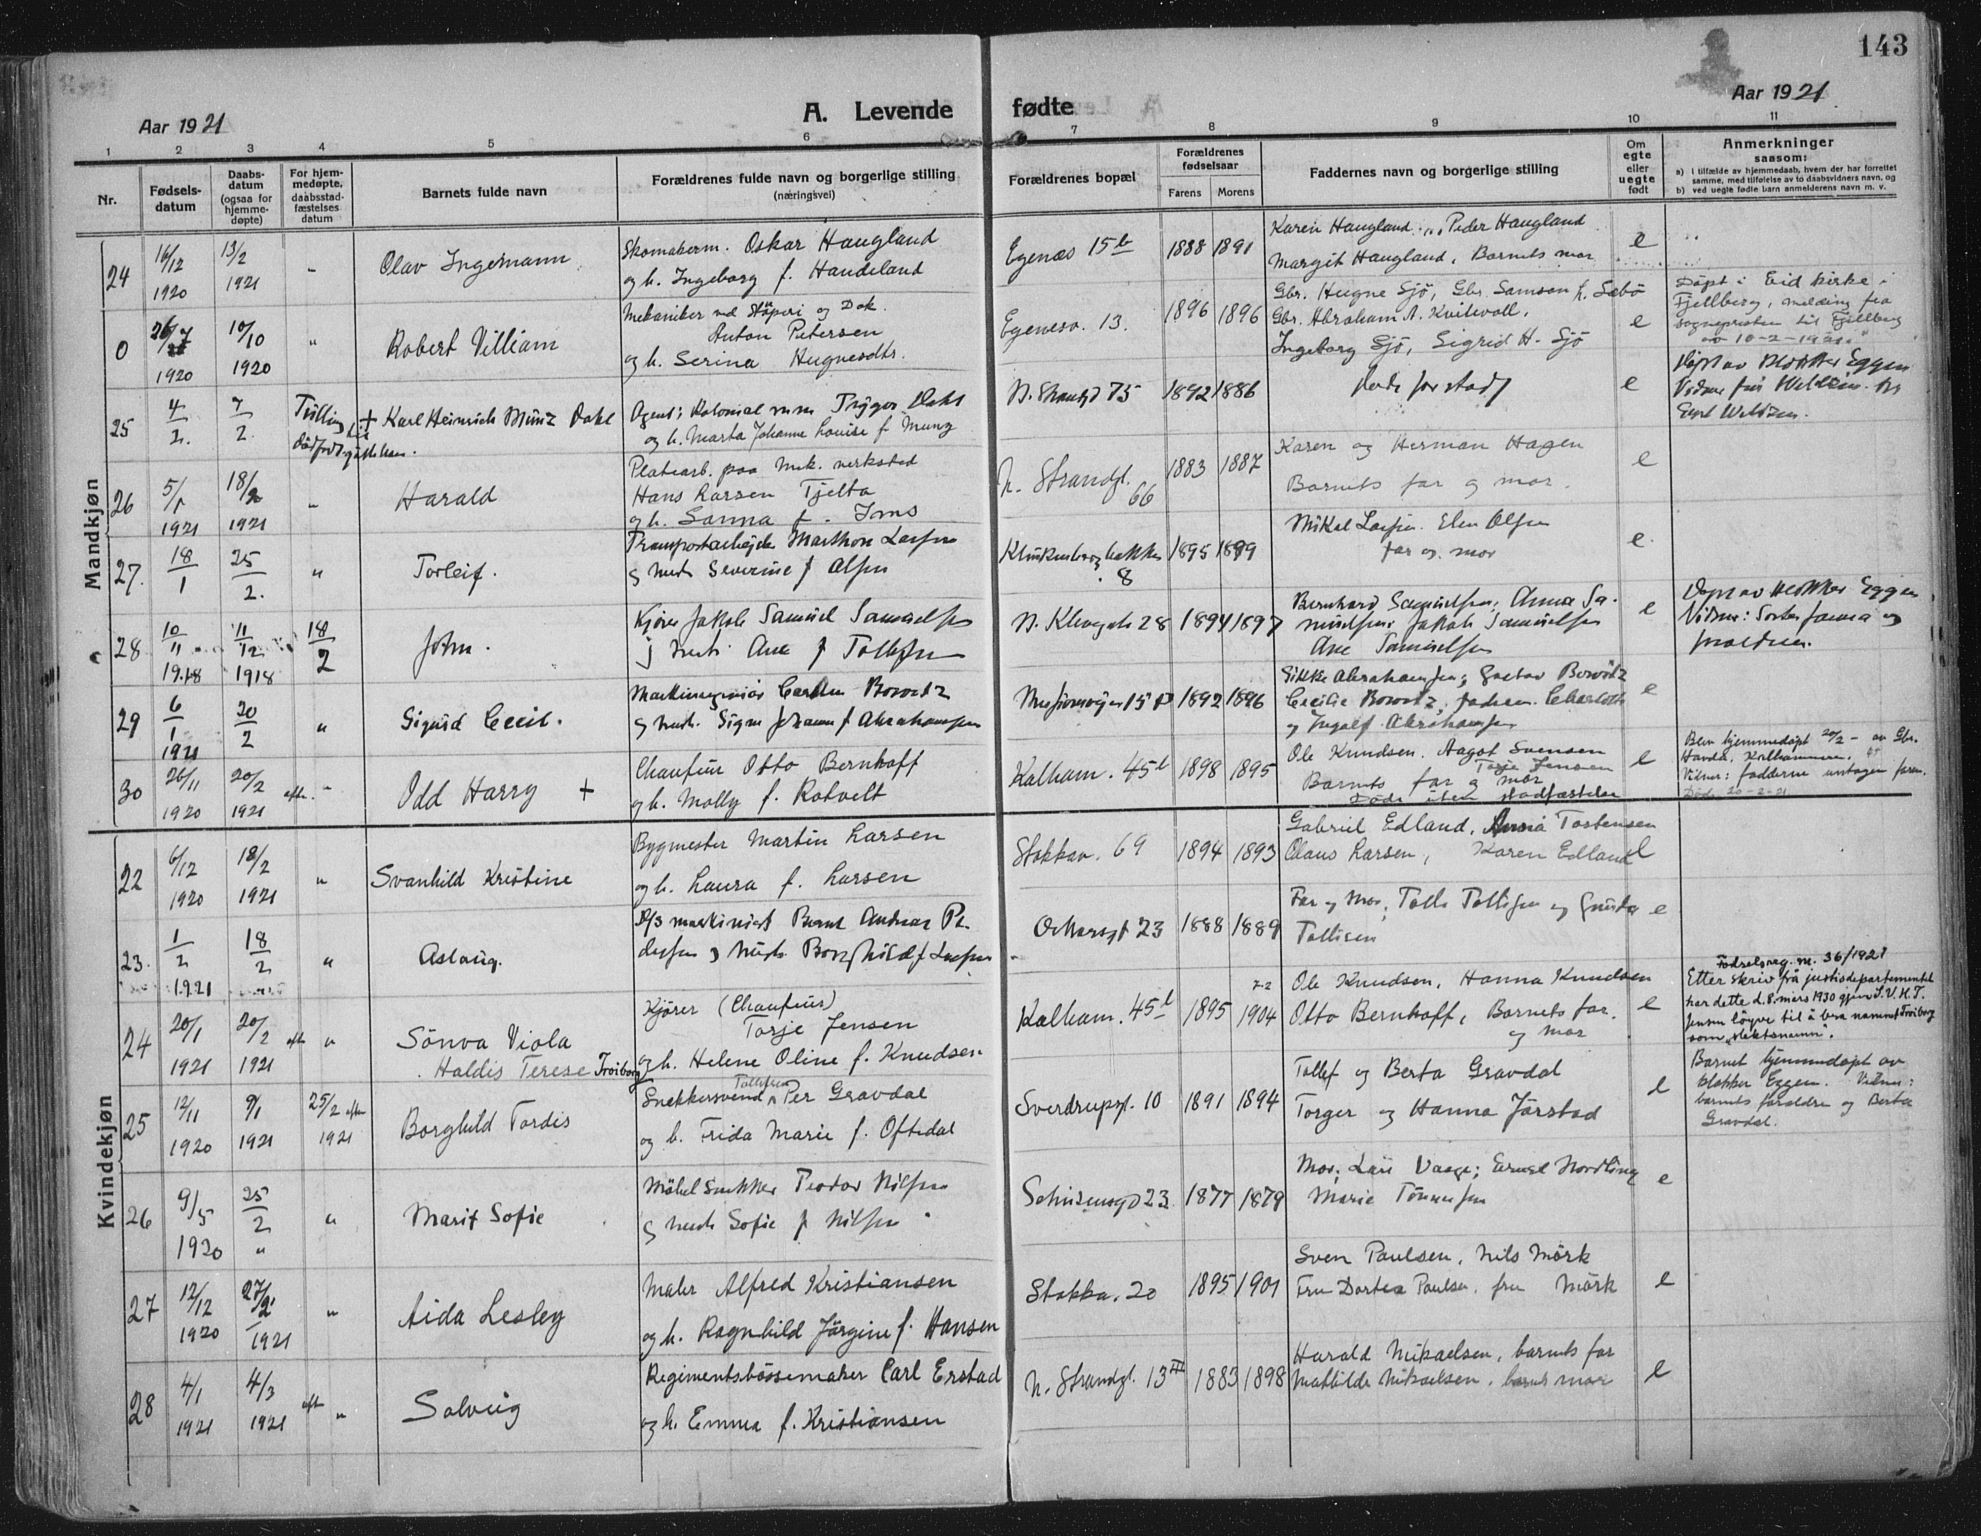 143
Aar 1921
A. Levende fødte
Aar 1921
1 2 3 4 5 6 7 8 9 10 11
Nr.
Fødsels-
datum
Daabs-
datum
(ogsaa for
hjemme-
døpte)
For hjem-
medøpte,
daabsstad-
fæstelses
datum
Barnets fulde navn
Forældrenes fulde navn og borgerlige stilling
(næringsvei)
Forældrenes bopæl
Forældrenes
fødselsaar
Farens Morens
Faddernes navn og borgerlige stilling
Om
egte
eller
uegte
født
Anmerkninger
saasom:
a) i tilfælde av hjemmedaab, hvem der har forrettet
samme, med tilføielse av to daabsvidners navn, og
b) ved uegte fødte barn anmelderens navn m. v.
Mandkjøn
24 16/12 1920 13/2 1921 " Olav Ingemann
Skomakerm. Oskar Haugland
og h. Ingeborg f. Handeland
Egenæs 15b 1888 1891
Karen Haugland, Peder Haugland
Margit Haugland, Barnets mor
e
0 1920 10/10 1920 " Robert Villiam
Mekaniker ved Støperi og Dok.
Anton Petersen
og h. Serina Hugnesdtr.
Egenesv. 13. 1896 1896
Gbr. Hugne Sjö, Gbr. Samson H. Sæbö
Gbr. Abraham A. Kvitevoll,
Ingeborg Sjö, Sigrid H. Sjö
e
Döpt i Eid kirke i
Fjellberg, melding fra
sognepresten til Fjellberg
av 10-2-1921.
25 4/2 7/2 Tvilling til
dödfödt
+ Karl Heinrich Münz Dahl
Agent i Kolonial Trygve Dahl
og h. Marta Johanne Louise f. Munz
N. Strandgt 75 1892 1886
e
Döpt av klokker Eggen
26 5/1 1921 18/2 1921 " Harald
Platearb. paa mek. verksted
Hans Larsen Tjelta
og h. Sanna f. Ims
N. Strandgt. 66 1883 1887
Karen og Herman Hagen
Barnets far og mor.
e
27. 18/1 25/2. " Torleif.
Transportarbeider Marthon Larsen
og hustr. Severine f. Olsen
Klinkenbergbakken 8 1895 1899
Mikal Larsen. Elen Olsen
far og mor
e
28 10/11 1918 11/12 1918 18/2 John.
Kjörer Jakob Samuel Samuelsen
og hustr. Ane f. Tollefsen
N. Klevegate 28 1894 1897
Bernhard Samuelsen; Anna Sa-
muelsen; Jakob Samuelsen
Ane Samuelsen
e
Döpt av klokker Eggen
29 6/1 1921 20/2 " Sigurd Cecil.
og hustr. Signe Johanne f. Abrahamsen
Misjonsveien 15 1892 1896
e
30 26/11 1920 20/2 1921 eft. " Odd Harry +
Chauffeur Otto Bernhoff
og h. Molly f. Rotvelt
Kalham. 45 1898 1895
Ole Knudsen. Aagot Svensen
Torje Jensen
Barnets far og mor
Döde uten stadfæstelse
e
Blev hjemmedöpt 20/2 - av Gbr.
Vidner: fadderne untagen faren.
Döde 20-2-21
Kvindekjøn
22 6/12 1920 18/2 1921 " Svanhild Kristine
Bygmester Martin Larsen
og h. Laura f. Larsen
Stokkav. 69 1894 1893
Gabriel Edland, Anna Tostensen
Olaus Larsen, Karen Edland
e
23. 1/2 1921 18/2 " Aslaug.
D/S maskinist Bernt Andreas Pe-
dersen og hustr. Borghild f. Larsen
Oskarsgt 23 1888 1889
Far og Mor; Tolle Tollisen og Gurida
Tollisen
e
24 20/1 1921 20/2 1921 eft. " Sönva Viola
Haldis Terese Troiborg
Kjörer (Chauffeur)
Torje Jensen
og h. Helene Oline f. Knudsen
Kalham. 45 1895 1904
Ole Knudsen, Hanna Knudsen
Otto Bernhoff, Barnets far.
og mor
e
Födselsreg. nr. 36/1921
Etter skriv frå justisdepartementet
har dette d. 8. mars 1930 gjeve S.V.H.T.
Jensen löyve til å bera namnet Troiborg
som "slektsnamn".
25 12/11 1920 9/1 1921 25/2 eften 1921 Borghild Tordis
Snekkersvend Tollefsen Per Gravdal
og h. Frida Marie f. Oftedal
Sverdrupsgt. 10 1891 1894
Tollef og Berta Gravdal
Torger og Hanna Jörstad
e
Barnet hjemmedöpt av
klokker Eggen. Vidner:
barnets foreldre og Berta
Gravdal.
26 9/5 1920 25/2 " " Marit Sofie
Möbelsnekker Teodor Nilsen
og hustr. Sofie f. Nilsen
23 1877 1879
Mor; Lars Vaage; Ernst Nordling
Marie Tönnesen
e
27 12/12 1920 27/2 1921 " Aida Lesley
Maler Alfred Kristiansen
og h. Ragnhild Jörgine f. Hansen
Stokka. 20 1895 1901
Sven Paulsen, Nils Mörk
Fru Dortea Paulsen, fru Mörk
e
28 4/1 1921 4/3 1921 eft. " Solveig
Regimentsbössemaker Carl Erstad
og h. Emma f. Kristiansen
N. Strandgt. 13 III 1883 1898
Harald Mikaelsen, barnets far
Mathilde Mikaelsen, barnets mor
e